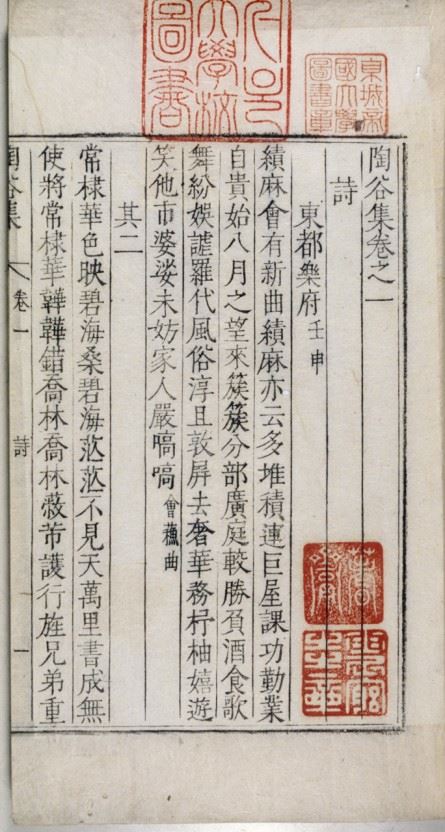 서울大學校圖書
京城帝國大學圖書章
陶谷集卷之一
詩
東都樂府 壬申
績麻會有新曲績麻亦云多堆積連巨屋課功勤業
自貴始八月之望來簇簇分部廣庭較勝負酒食歌
舞紛娛謔羅代風俗淳且敦屏去奢華務杼柚嬉遊
笑他市婆娑未妨家人嚴嗃嗃 會蘓曲
其二
常棣華色映碧海桑碧海茫茫不見天萬里書成無
使將常棣華韡韡錯喬林喬林蔽芾護行旌兄弟重
陶谷集 卷一 詩 一